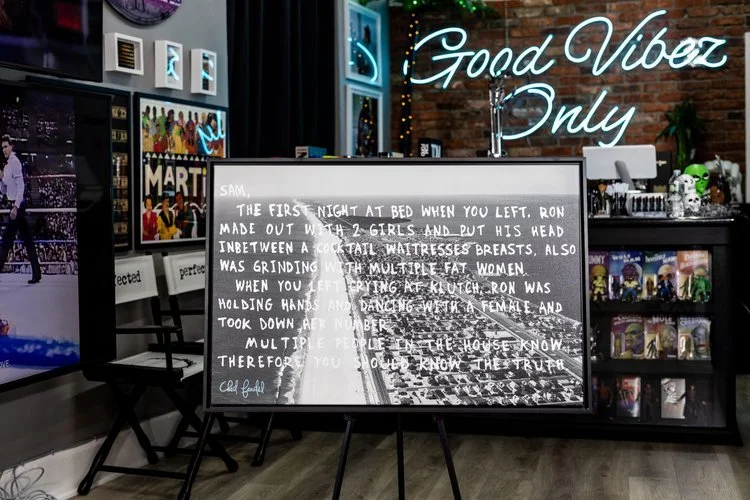 Good Vibez
Only
MARTI
fected
perfec
SAM,
THE FIRST NIGHT AT BED WHEN YOU LEFT, RON
MADE OUT WITH 2 GIRLS AND PUT HIS HEAD
INBETWEEN A COCKTAIL WAITRESSES BREASTS. ALSO
WAS GRINDING WITH MULTIPLE FAT WOMEN.
WHEN YOU LEFT CRYING AT KLUTCH, RON WAS
HOLDING HANDS AND DANCING WITH A FEMALE AND
TOOK DOWN HER NUMBER.
MULTIPLE PEOPLE IN THE HOUSE KNOW,
THEREFORE YOU SHOULD KNOW THE TRUTH